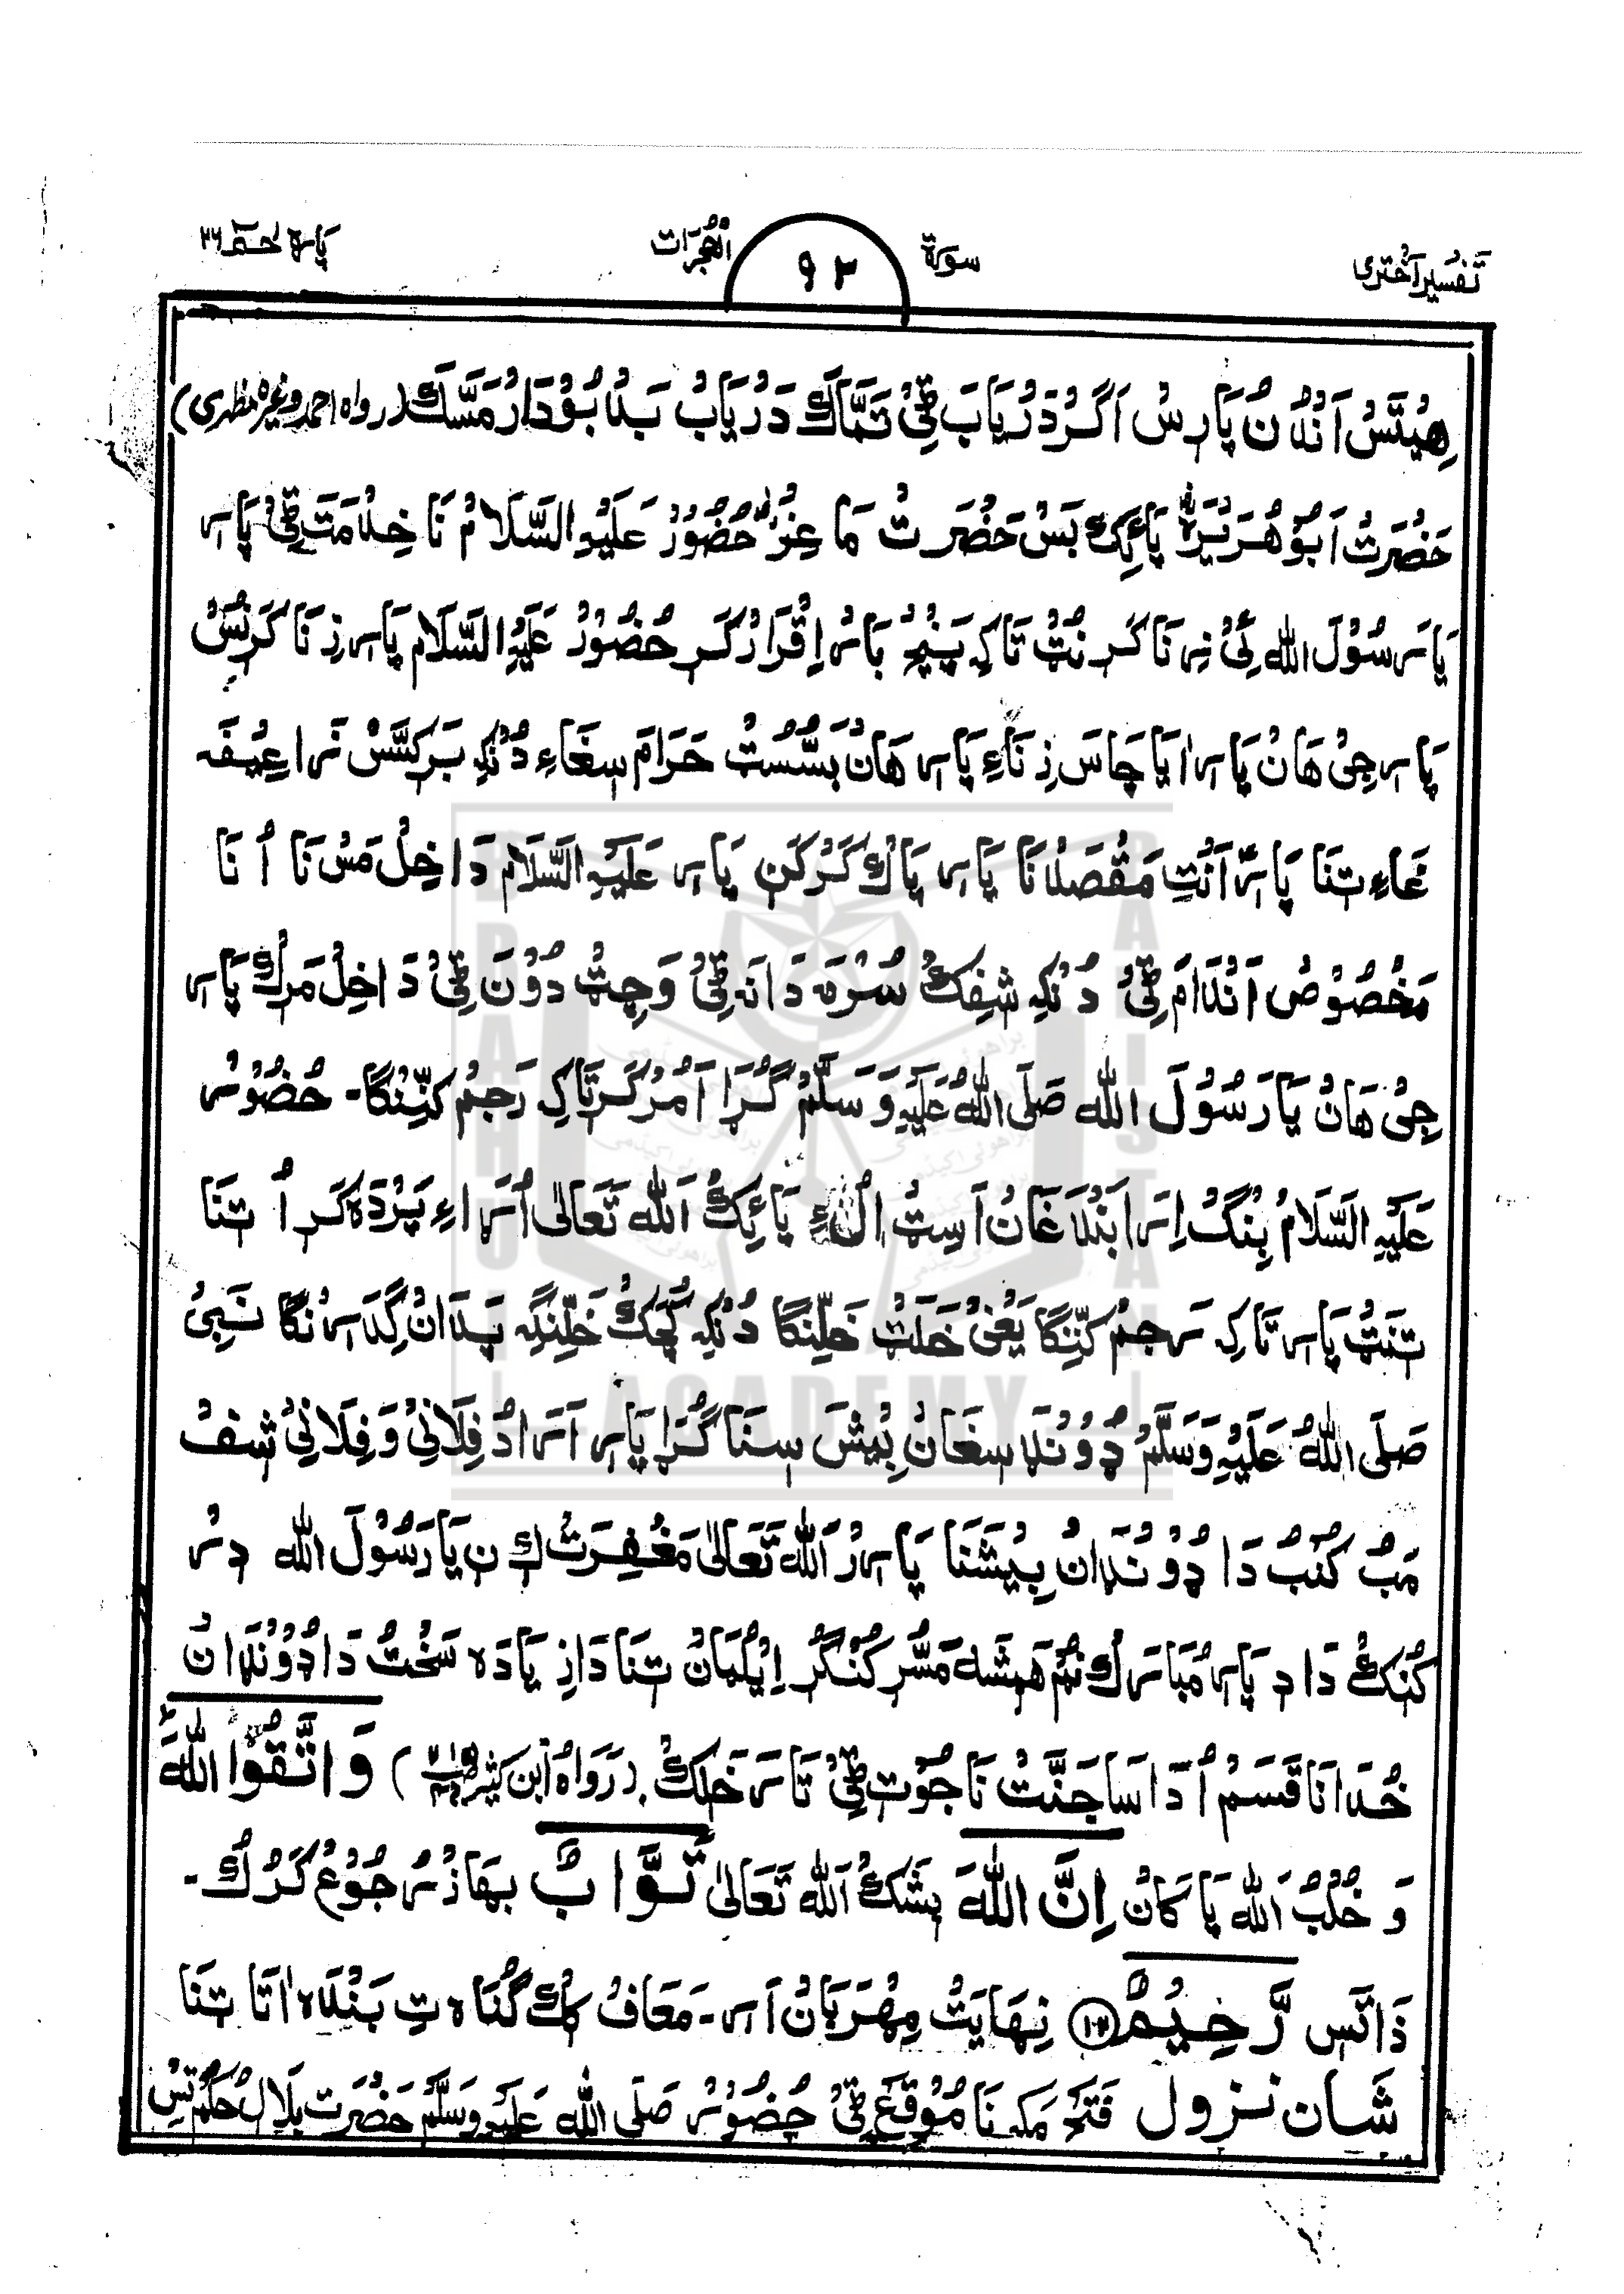 تفسیر آختری
سورۃ
۹۲
الحجرات
پارہ حٰمٓ ۲۶
ھِیْتَسْ اَنْدُنْ پَارِسْ اَگَرْ دَرْیَابَ ٹِیْ تَمَّاکْ دَرْیَابْ بَدْ بُوْدَارْ مَسَّکْ (رواہ احمد وغیرہ مظہری)
حَضْرَتْ اَبُوْ ھُرَیْرَہْ پَائِکْ بَسْ حَضْرَتْ مَا عِزْ حُضُوْرْ عَلَیْہِ السَّلَامْ نَا خِدْمَتَ ٹِیْ پَارِ
یَا رَسُوْلَ اللہِ ئِیْ زِنَا کَرِنُٹْ تَاکِہ پَنْچْ بَارْ اِقْرَارْ کَرِ حُضُوْرْ عَلَیْہِ السَّلَامْ پَارِ زِنَا کَرِیْسْ
پَارِ جِیْ ھَانْ پَارِ اٰیَا چَاسَ زِنَاءِ پَارِ ھَانْ بَسُّسْٹْ حَرَامَ سِغَاءِ دُنْکِہ بَرِکَسَّسْ نَرَا عِیْفَہ
غَاءِ تِنَا پَارِ اَنْتِ مَقْصَدْ نَا پَارِ پَاکْ کَرْکَنِ پَارِ عَلَیْہِ السَّلَامْ دَاخِلْ مَسْ نَا اُ نَا
مَخْصُوْصْ اَنْدَامَ ٹِیْ دُنْکِہ شِفِکْ سُرْمَہ دَانَہ ٹِیْ وَ چِٹْ دُوْنَ ٹِیْ دَاخِلْ مَرِکْ پَارِ
جِیْ ھَانْ یَا رَسُوْلَ اللہِ صَلَّی اللہُ عَلَیْہِ وَسَلَّمْ گُڑَا اَمْرْ کَرِ تَاکِہ رَجِمْ کَنِّنْگَا۔ حُضُوْرْ
عَلَیْہِ السَّلَامْ بِنْگْ اِرَا بَنْدَغَانْ اَسِٹْ اُلِّءِ پَائِکْ اَللہ تَعَالٰی اُرَاءِ پَرْدَہ کَرِ اُ تِنَا
تِنَٹْ پَارِ تَاکِہ رَجِمْ کَنِّنْگَا یَعْنِیْ خَلَٹْ خَلِّنْگَا دُنْکِہ کُچَکْ خَلِّنْگِہ پَدَانْ گِدَرِنْگَا نَبِیْ
صَلَّی اللہُ عَلَیْہِ وَسَلَّمْ ڈُوْنْڈَا سِغَانْ بِیْشَ سِنَا گُڑَا پَارِ اَرَادْ فِلَانِیْ وَ فِلَانِیْ شِفْ
مَبْ کُنَبْ دَا ڈُوْنْڈَانْ بِیْشَنَا پَارِرْ اَللہ تَعَالٰی مَغْفِرَتْ کِ نَ یَا رَسُوْلَ اللہِ دِرْ
کُنِکْ دَا دِ پَارِ مُبَارَکْ نُمْ ھَمِیْشَہ مَسُّرِ کُنْگُرْ اِیْلْمَانْ تِنَا دَا زِیَادَہ سَخْتْ دَا ڈُوْنْڈَانْ
خُدَانَا قَسَمْ اُ دَاسَا جَنَّتْ نَا جُوْتِ ٹِیْ تَارَ خَلِکْ۔ (رَوَاہُ ابْنِ کَثِیْر) وَاتَّقُوا اللّٰہَ
وَ خُلِبْ اَللہ پَا کَانْ اِنَّ اللّٰہَ بِشَکْ اَللہ تَعَالٰی تَوَّابٌ بھَاز رُجُوْعْ کَرُکْ۔
ذَاتَسِ رَّحِیْمٌ ⑫ نِہَایَتْ مِھْرَبَانْ اَرِ۔ مَعَافْ کِکْ گُنَاہ تِ بَنْدَہ اٰتَا تِنَا
شَان نزول فَتْحِ مَکَہ نَا مُوْقَعَ ٹِیْ حُضُوْرْ صَلَّی اللہُ عَلَیْہِ وَسَلَّمْ حَضْرَت بِلَالْ حُکُمْ تِسِ